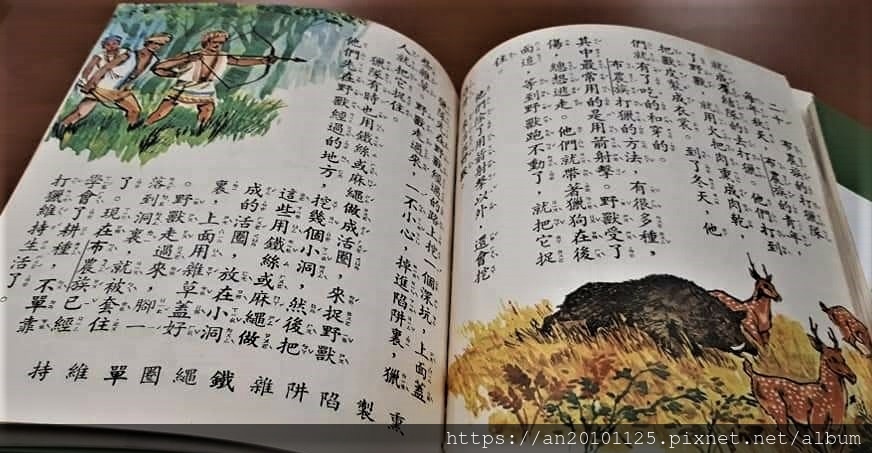 二十 布農族的打獵隊
每年秋天，布農族的青年，
就成群結隊的去打獵。他們打到
了野獸，就用火把肉熏成肉乾，
把獸皮製成衣裳。到了冬天，他
們就有了吃的和穿的。
布農族打獵的方法，有很多種，
其中最常用的是用箭射擊。野獸受了
傷，總想逃走。他們就帶著獵狗在後
面追，等到野獸跑不動了，就把它捉
住。
他們除了用箭射擊以外，還會挖
野獸經過的路上挖一個深坑，上面蓋
些雜草。野獸走過來，一不小心，掉進陷阱裏，獵
人就把它捉住。
獵隊有時也用鐵絲或麻繩做成活圈，來捉野獸
他們先在野獸經過的地方，挖幾個小洞，然後把
這些用鐵絲或麻繩做
成的活圈，放在小洞
裏，上面用雜草蓋好
。野獸走過來，腳一
落到洞裏，就被套住
了。現在布農族已經
學會了耕種，不單靠
打獵維持生活了。
熏製陷阱雜鐵繩圈單維持
https://an20101125.pixnet.net/album